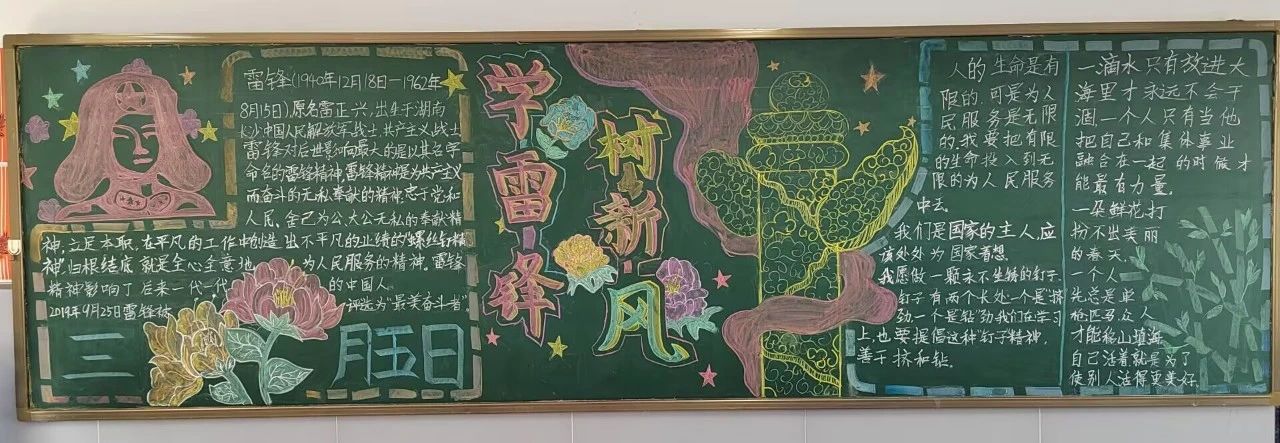 雷锋(1940年12月18日—1962年
8月15日),原名雷正兴,出生于湖南
长沙中国人民解放军战士,共产主义战士
雷锋对后世影响最大的是以其名字
命名的雷锋精神雷锋精神是为共产主义
而奋斗的无私奉献的精神忠于党和
人民,舍己为公,大公无私的奉献精
神,立足本职,在平凡的工作中创造出不平凡的业绩的"螺丝钉精
神"归根结底就是全心全意地为人民服务的精神。雷锋
精神影响了后来一代一代的中国人。
2019年9月25日雷锋被评选为"最美奋斗者"
三月五日
学雷锋
树新风
人的生命是有
限的.可是为人
民服务是无限
的我要把有限
的生命投入到无
限的为人民服务
中去
我们是国家的主人应
该处处为国家着想
我愿做一颗永不生锈的钉子.
钉子有两个长处一个是"挤"
劲一个是"钻"劲我们在学习
上,也要提倡这种钉子精神,
善于挤和钻。
一滴水只有放进大
海里才永远不会干
涸一个人只有当他
把自己和集体事业
融合在一起的时候才
能最有力量。
一朵鲜花打
扮不出美丽
的春天
一个人
先总是单
枪匹马众人
才能移山填海
自己活着就是为了
使别人活得更美好.